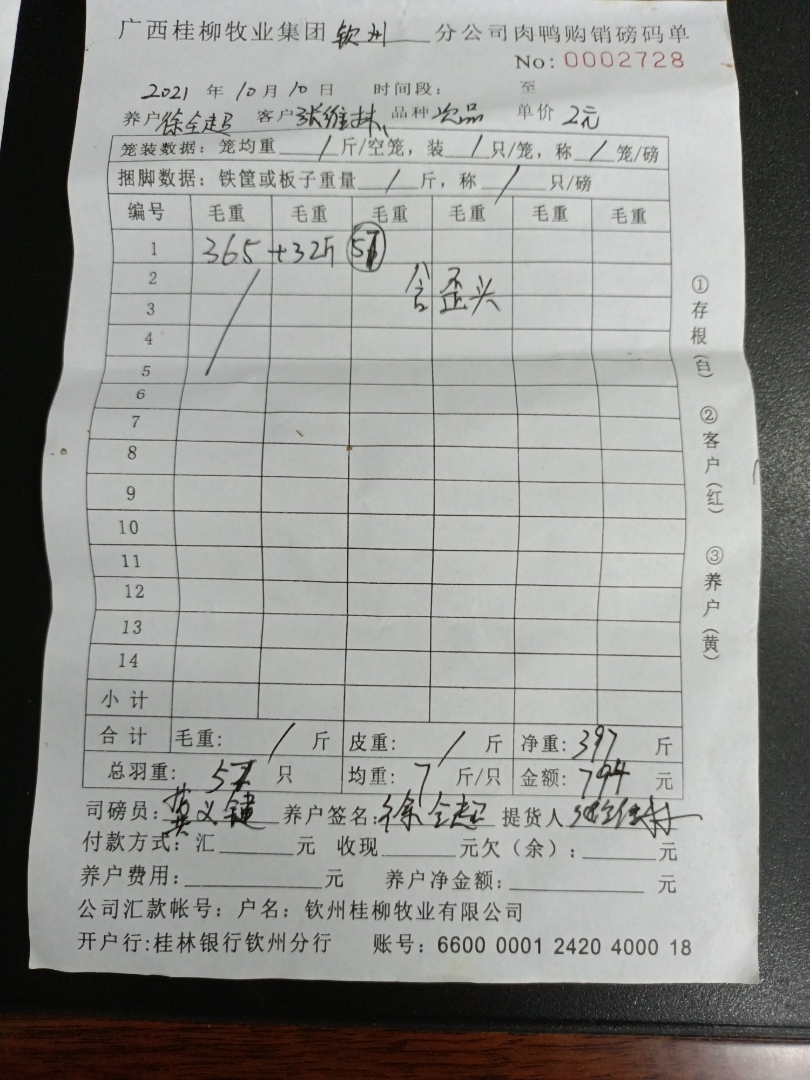 广西桂柳牧业集团 钦州 分公司肉鸭购销磅码单
No: 0002728
2021 年 10 月 10 日 时间段: 至
养户 徐全超 客户 张维林 品种 次品 单价 2元
笼装数据: 笼均重 / 斤/空笼, 装 / 只/笼, 称 / 笼/磅
捆脚数据: 铁筐或板子重量 / 斤, 称 / 只/磅
编号 毛重 毛重 毛重 毛重 毛重 毛重
1 365 +32斤 57
2 含歪头
3
4
5
6
7
8
9
10
11
12
13
14
小计
合计 毛重: / 斤 皮重: / 斤 净重: 397 斤
总羽重: 57 只 均重: 7 斤/只 金额: 794 元
司磅员: 义键 养户签名: 徐全超 提货人 张维林
付款方式: 汇 元 收现 元欠(余): 元
养户费用: 元 养户净金额: 元
公司汇款帐号: 户名: 钦州桂柳牧业有限公司
开户行:桂林银行钦州分行 账号: 6600 0001 2420 4000 18
①存根(白) ②客户(红) ③养户(黄)